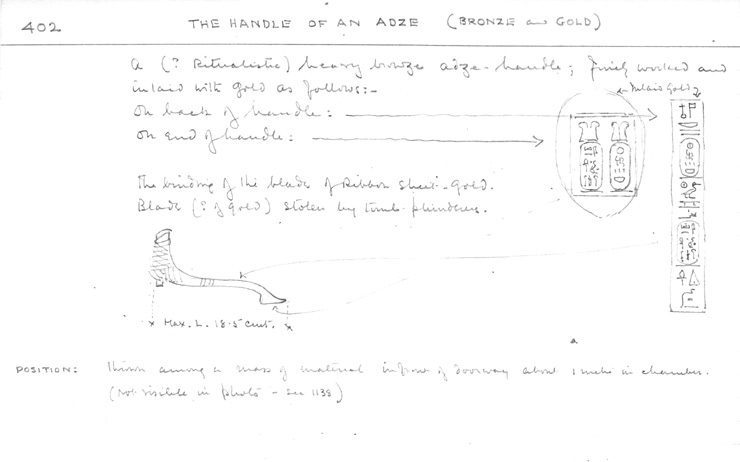 402
THE HANDLE OF AN ADZE (BRONZE and GOLD)
A (? Ritualistic) heavy bronze adze-handle; finely worked and
inlaid with gold as follows:-
Inlaid Gold
On back of handle:
On end of handle:
The binding of the blade of Ribbon sheet-gold.
Blade (? of gold) stolen by tomb-plunderers.
x Max. L. 18.5 cent. x
POSITION: Thrown among a mass of material in front of doorway about 1 metre in chamber.
(Not visible in photo - see 1138)